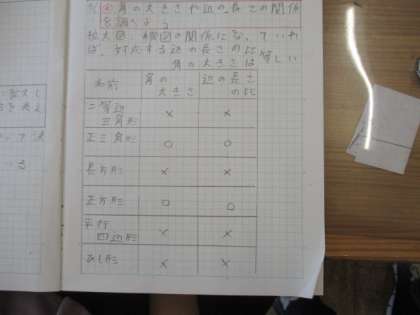 角の大きさや辺の長さの関係
を調べる。
拡大図、縮図の関係になっていれ
ば、対応する辺の長さの比
角の大きさは 等しい
名前 角の大きさ 辺の長さの比
二等辺三角形 × ×
正三角形 ○ ○
長方形 × ×
正方形 ○ ○
平行四辺形 × ×
ひし形 × ×